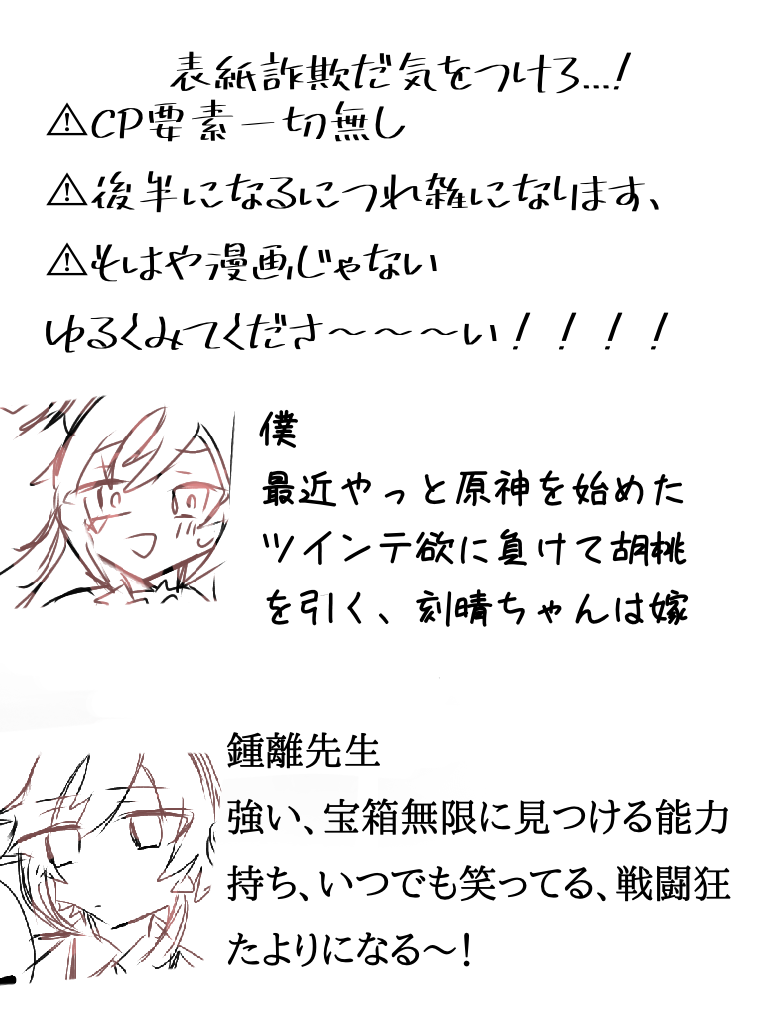 表紙詐欺だ気をつけろ...!
⚠CP要素一切無し
⚠後半になるにつれ雑になります、
⚠もはや漫画じゃない
ゆるくみてくださ～～～い！！！！
僕
最近やっと原神を始めた
ツインテ欲に負けて胡桃
を引く、刻晴ちゃんは嫁
鍾離先生
強い、宝箱無限に見つける能力
持ち、いつでも笑ってる、戦闘狂
たよりになる～!